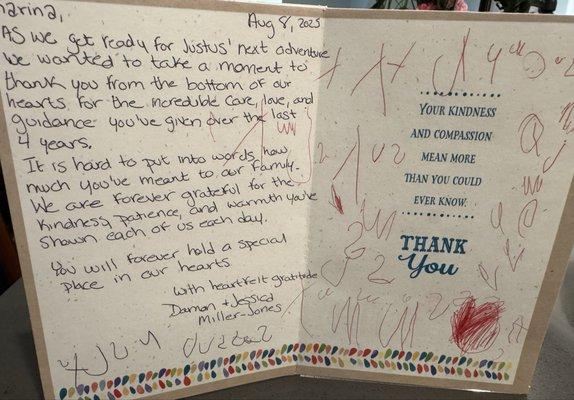 Aug 8, 2025
As we get ready for Justus' next adventure
we wanted to take a moment to
thank you from the bottom of our
hearts for the incredible care, love, and
guidance you've given over the last
4 years.
It is hard to put into words how
much you've meant to our family.
We are forever grateful for the
kindness, patience, and warmth you've
shown each of us each day.
You will forever hold a special
place in our hearts
with heartfelt gratitude
Damon + Jessica
Miller-Jones
YOUR KINDNESS
AND COMPASSION
MEAN MORE
THAN YOU COULD
EVER KNOW.
THANK
You